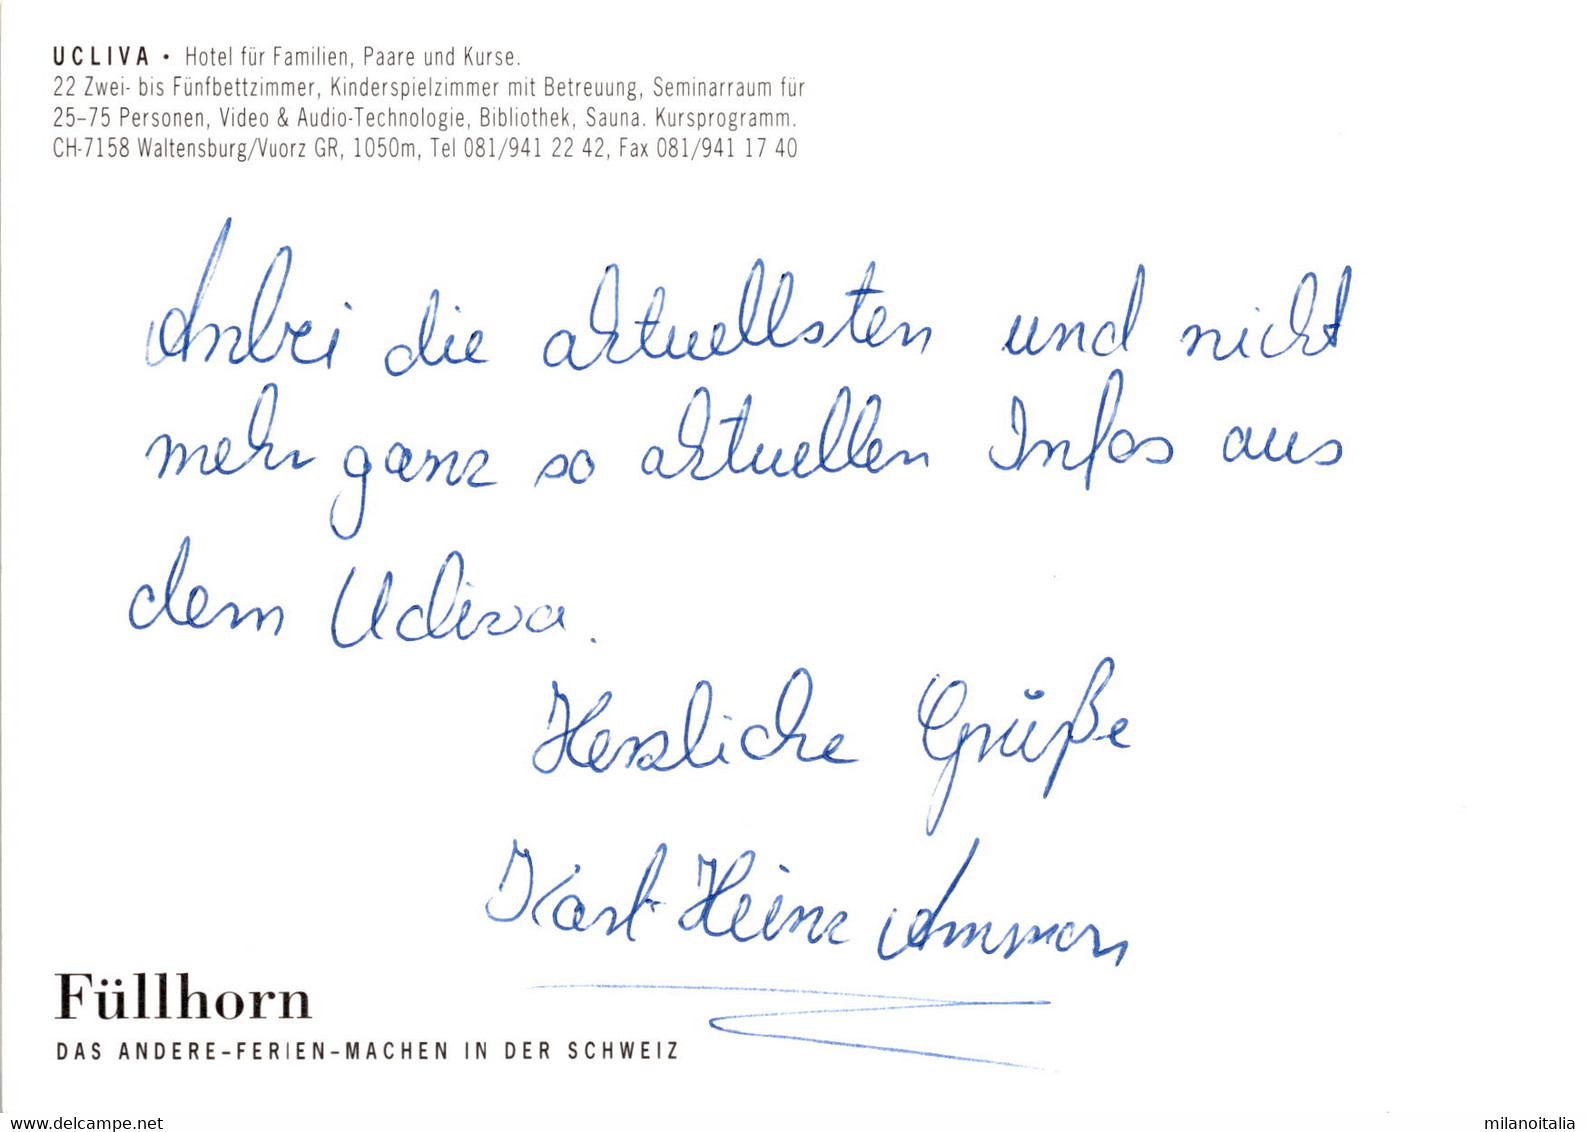 UCLIVA • Hotel für Familien, Paare und Kurse.
22 Zwei- bis Fünfbettzimmer, Kinderspielzimmer mit Betreuung, Seminarraum für
25–75 Personen, Video & Audio-Technologie, Bibliothek, Sauna. Kursprogramm.
CH-7158 Waltensburg/Vuorz GR, 1050m, Tel 081/941 22 42, Fax 081/941 17 40
Anbei die aktuellsten und nicht
mehr ganz so aktuellen Infos aus
dem Ucliva.
Herzliche Grüße
Karl-Heinz Ammon
Füllhorn
DAS ANDERE-FERIEN-MACHEN IN DER SCHWEIZ
www.delcampe.net
milanoitalia